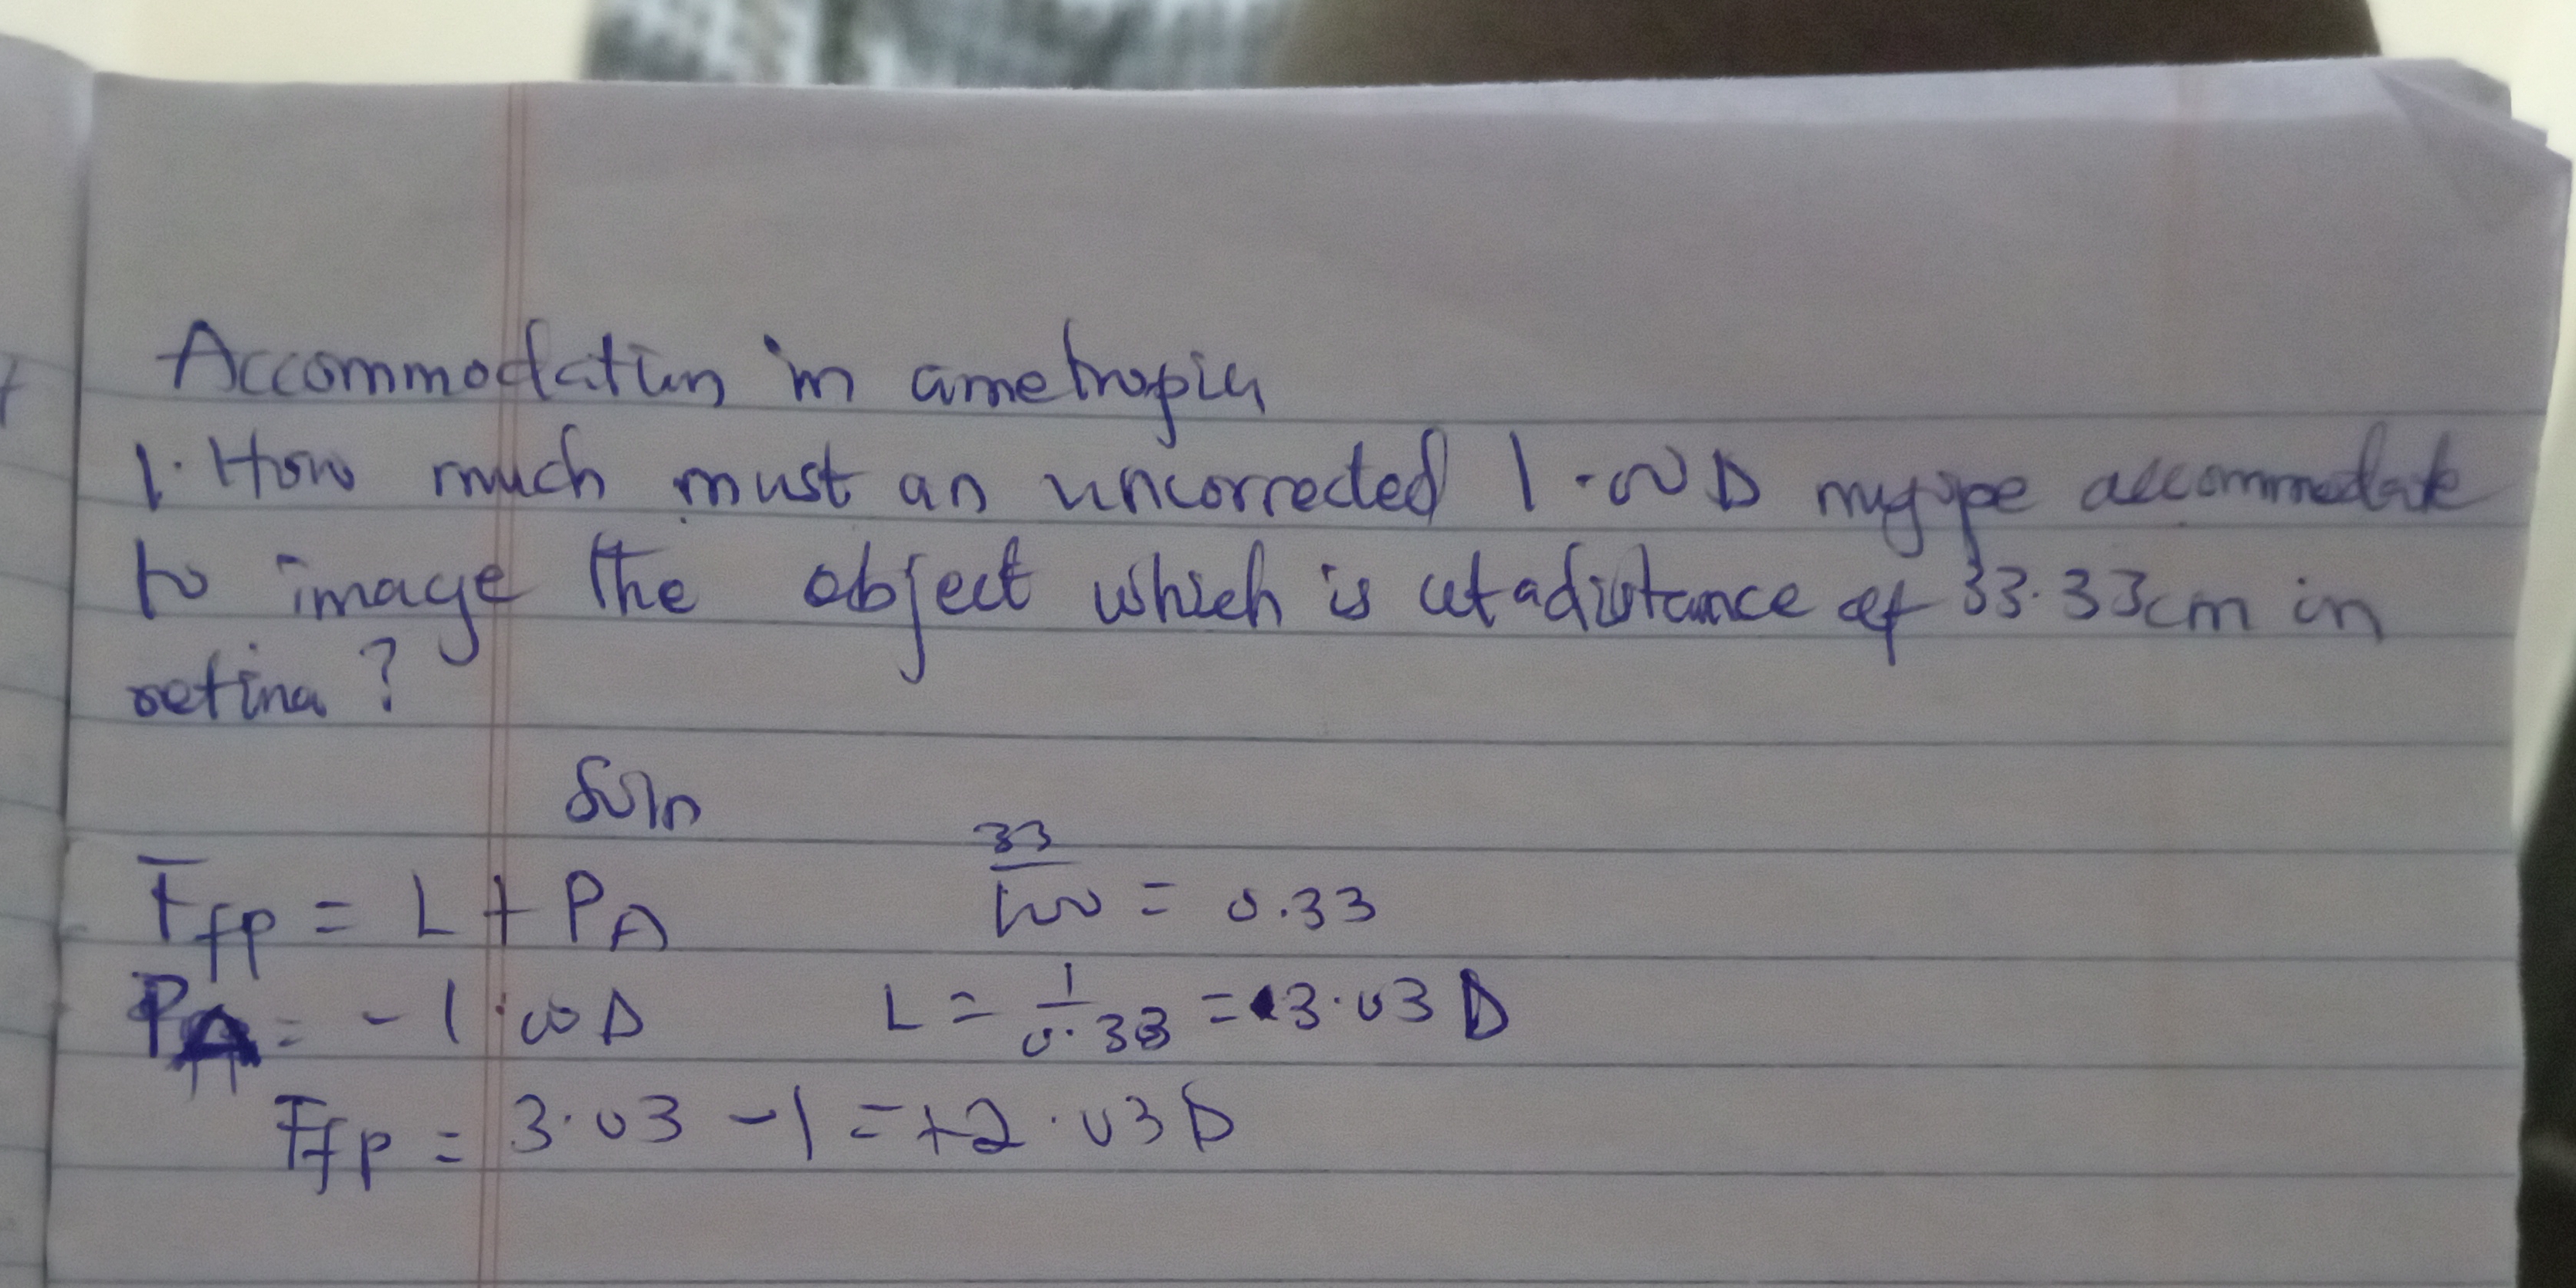 Accommodation in ametropia
1. How much must an uncorrected 1.00D myope accommodate
to image the object which is at a distance of 33.33cm in
retina?
Soln
F_fp = L + P_A    33/100 = 0.33
P_A = -1.00D    L = 1/0.33 = 3.03D
F_fp = 3.03 - 1 = +2.03D